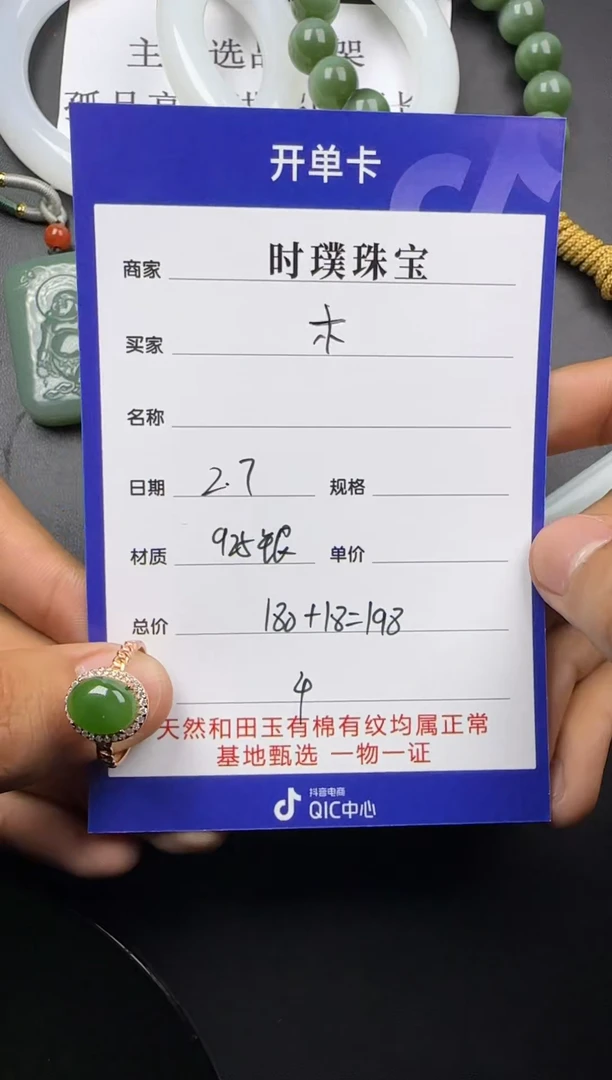 主 选品 架
开单卡
商家 时璞珠宝
买家 木
名称
日期 2.7 规格
材质 925银 单价
总价 180+18=198
4
天然和田玉有棉有纹均属正常
基地甄选 一物一证
抖音电商
QIC中心